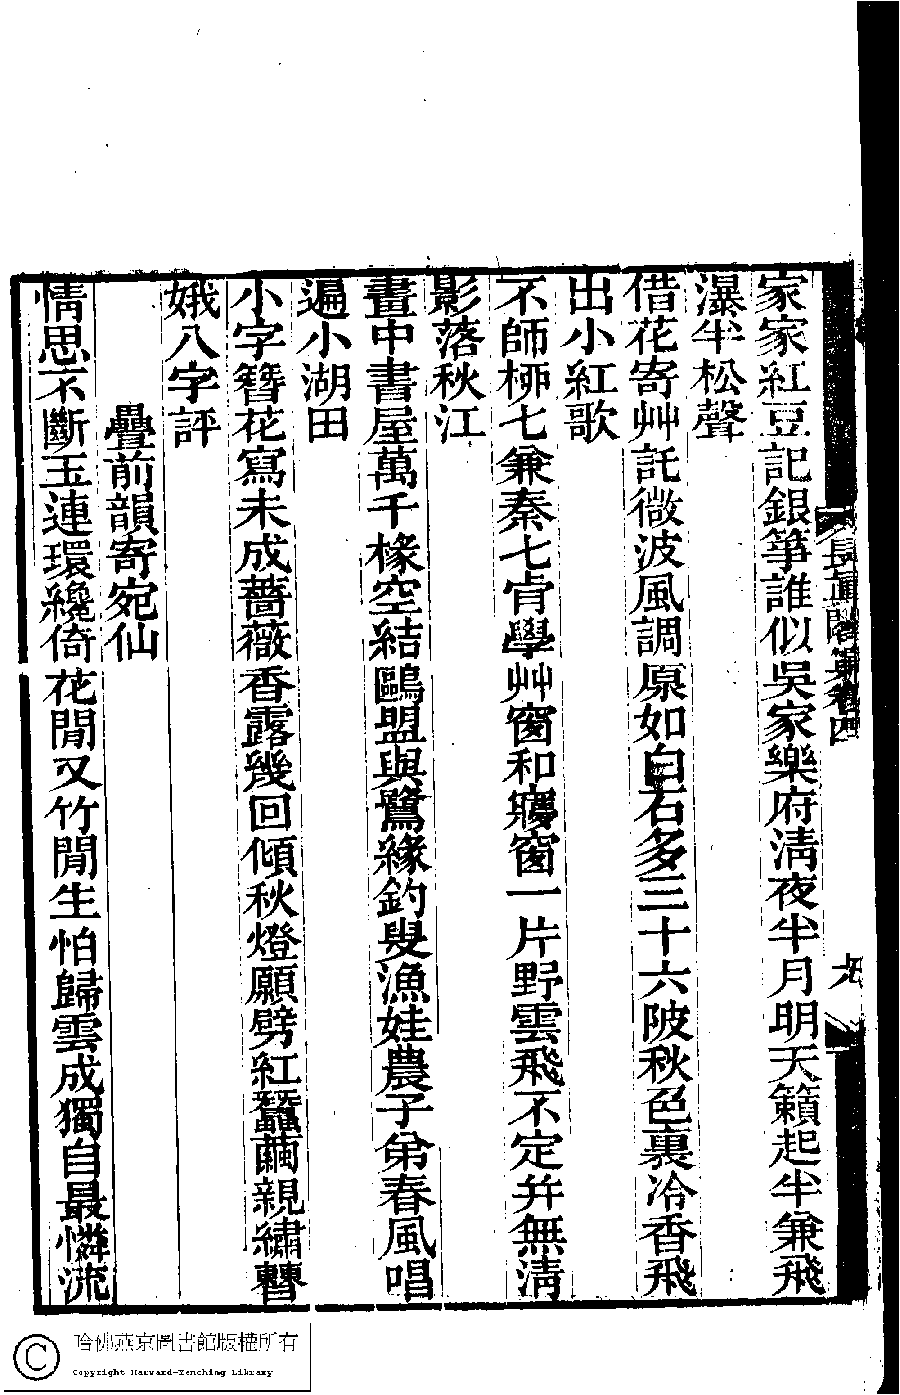 家家紅豆記銀箏誰似吳家樂府淸夜半月明天籟起半兼飛
瀑半松聲
借花寄艸託微波風調原如白石多三十六陂秋色裏冷香飛
出小紅歌
不師柳七兼秦七肯學艸窗和㝱窗一片野雲飛不定幷無淸
影落秋江
畫中書屋萬千椽空結鷗盟與鷺緣釣叟漁娃農子弟春風唱
遍小湖田
小字簪花寫未成薔薇香露幾回傾秋燈願劈紅蠶繭親繡
娥八字評
疊前韻寄宛仙
情思不斷玉連環纔倚花閒又竹閒生怕歸雲成獨自最憐流
長眞閣集卷四
九
哈佛燕京圖書館版權所有
Copyright Harvard-Yenching Library